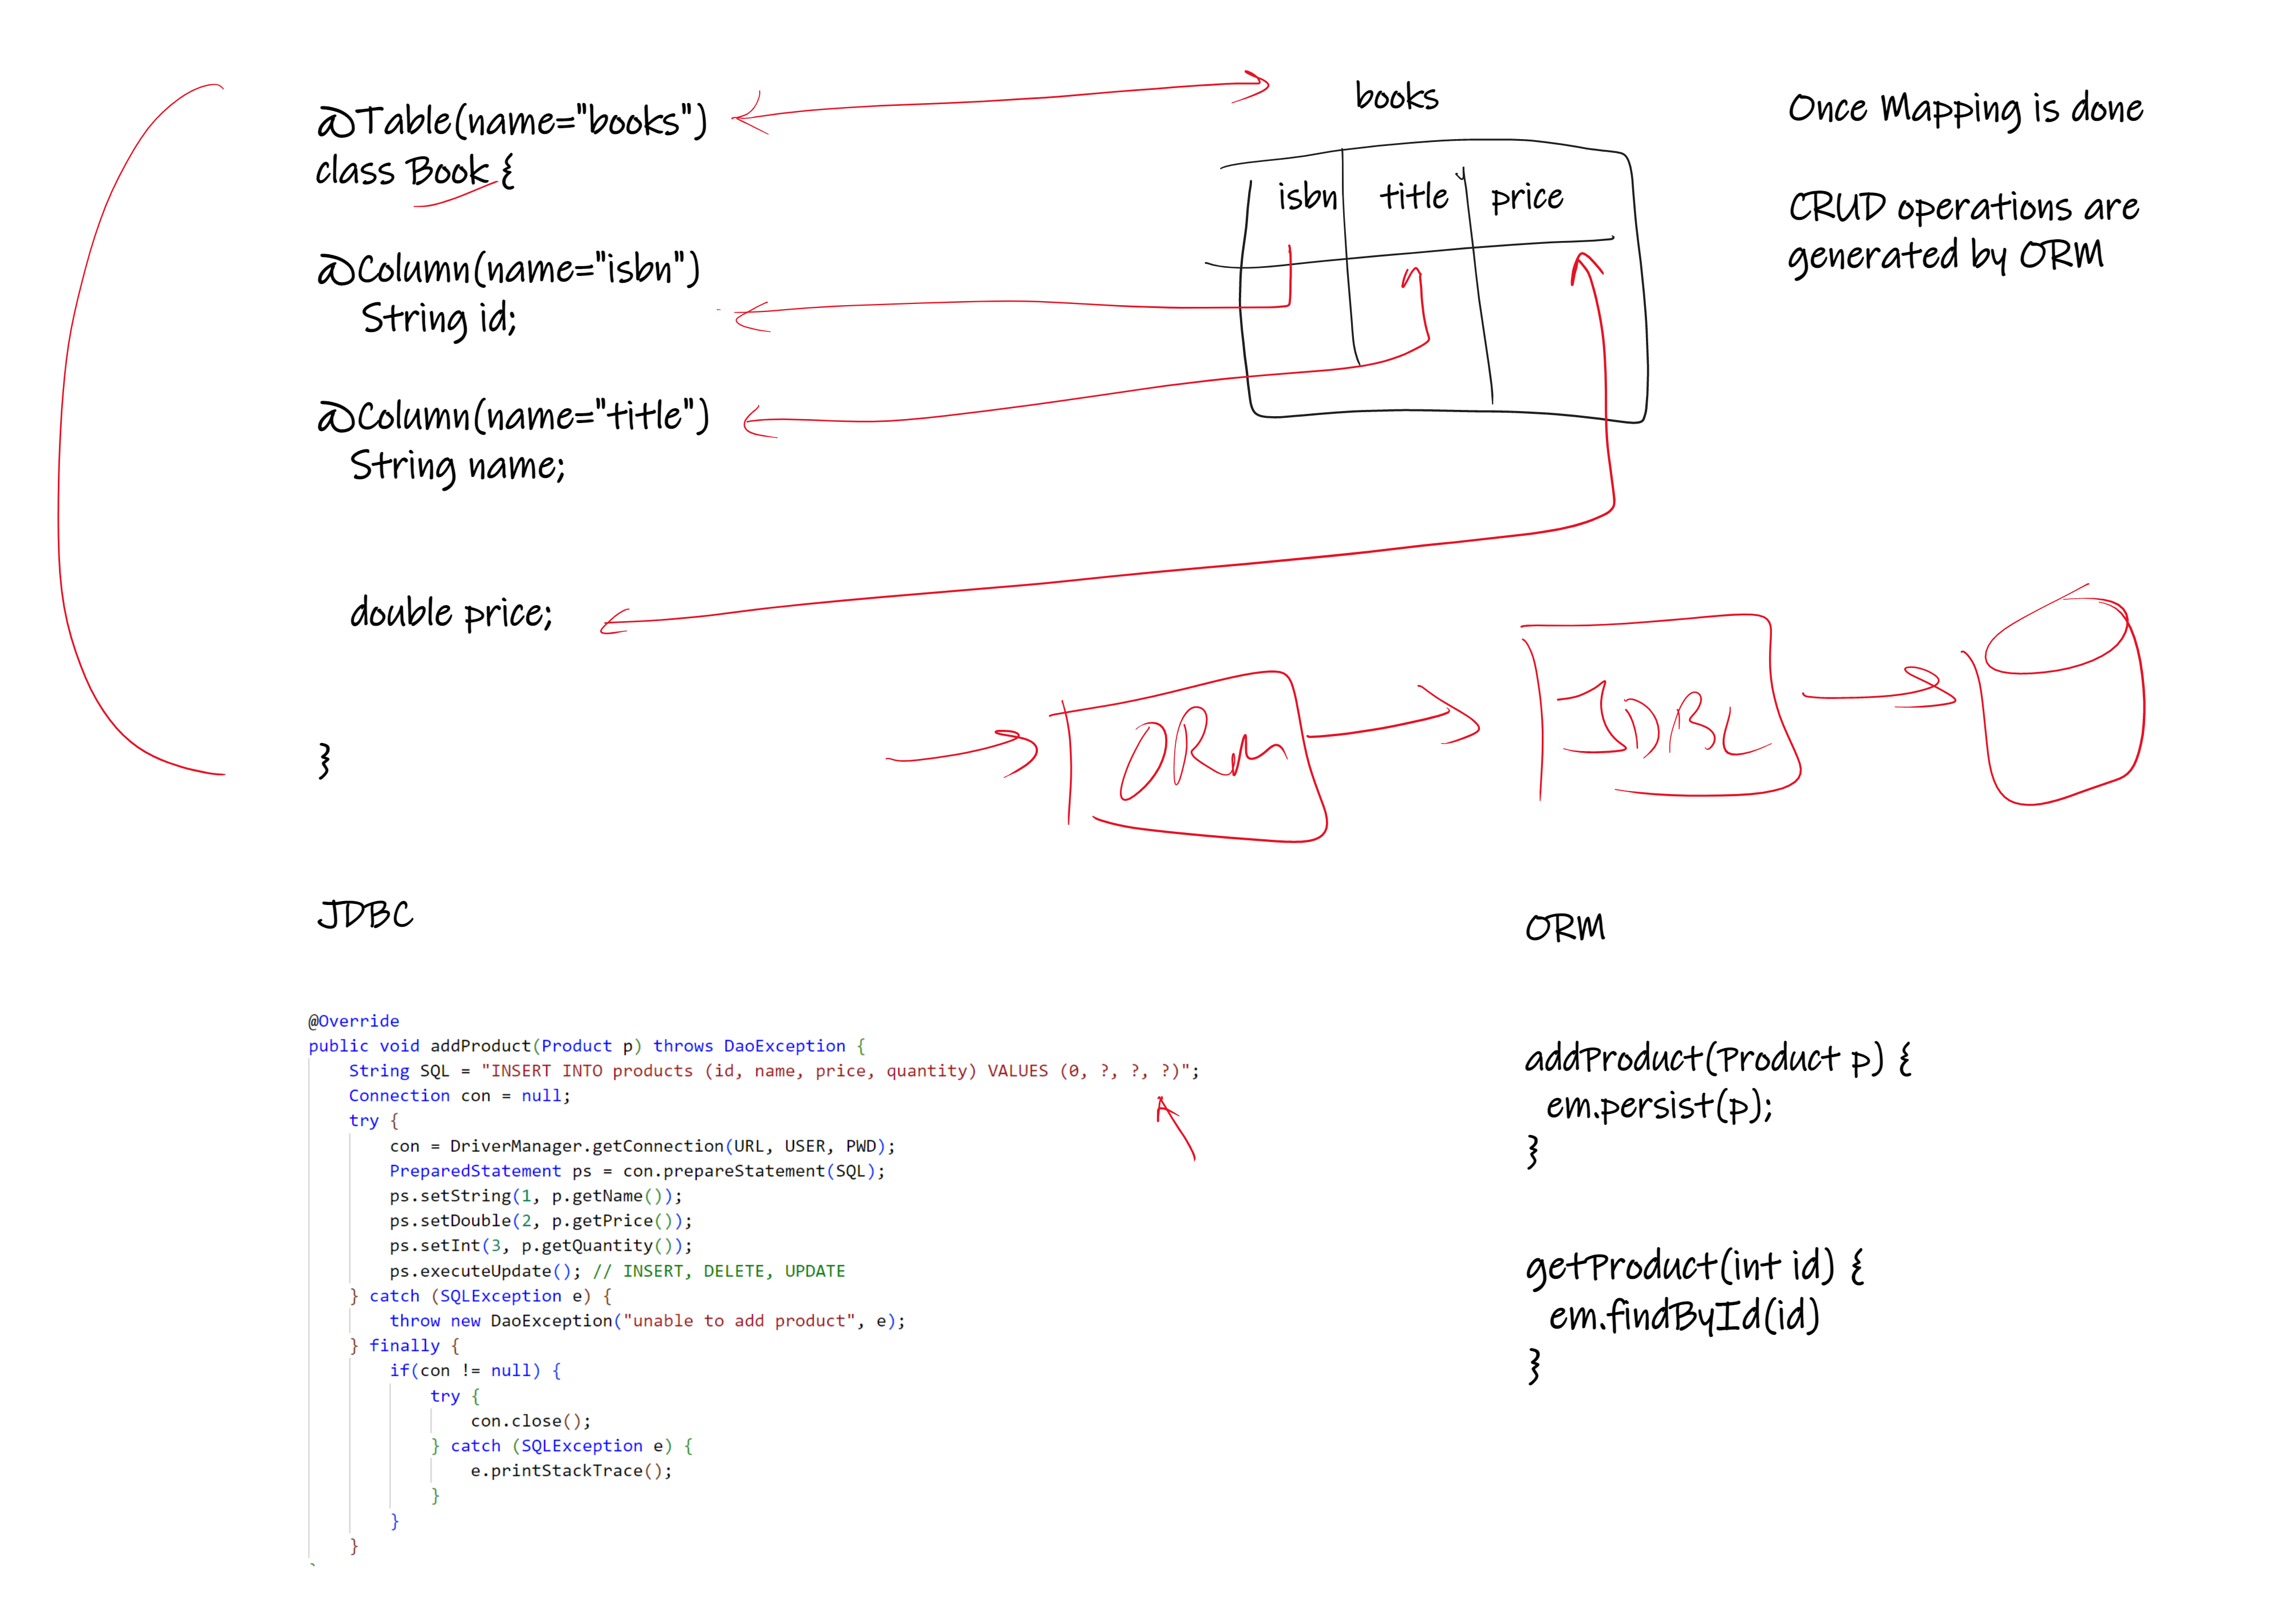 @Table(name="books")
class Book {
@Column(name="isbn")
String id;
@Column(name="title")
String name;
double price;
}
books
isbn title price
Once Mapping is done
CRUD operations are
generated by ORM
ORM
JDBC
JDBC
@Override
public void addProduct(Product p) throws DaoException {
String SQL = "INSERT INTO products (id, name, price, quantity) VALUES (0, ?, ?, ?)";
Connection con = null;
try {
con = DriverManager.getConnection(URL, USER, PWD);
PreparedStatement ps = con.prepareStatement(SQL);
ps.setString(1, p.getName());
ps.setDouble(2, p.getPrice());
ps.setInt(3, p.getQuantity());
ps.executeUpdate(); // INSERT, DELETE, UPDATE
} catch (SQLException e) {
throw new DaoException("unable to add product", e);
} finally {
if(con != null) {
try {
con.close();
} catch (SQLException e) {
e.printStackTrace();
}
}
}
ORM
addProduct(Product p) {
em.persist(p);
}
getProduct(int id) {
em.findById(id)
}